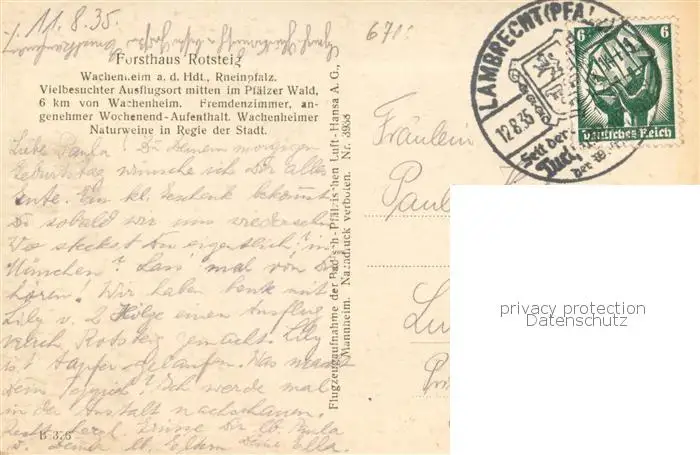 11.8.35
Forsthaus Rotsteig
Wachenheim a. d. Hdt., Rheinpfalz.
Vielbesuchter Ausflugsort mitten im Pfälzer Wald,
6 km von Wachenheim. Fremdenzimmer, an-
genehmer Wochenend-Aufenthalt. Wachenheimer
Naturweine in Regie der Stadt.
Liebe Paula! Zu Deinem morgigen
Geburtstag wünsche ich Dir alles
Gute. Ein kl. Geschenk bekommst
Du sobald wir uns wiedersehen.
Wo steckst Du eigentlich? in
München? Lass' mal von Dir
hören! Wir haben heute mit
Lily u. einen Ausflug
nach Rotsteig gemacht. Lily
ist tapfer gelaufen. Was macht
Dein Teppich? Ich werde mal
in der Anstalt nachschauen.
Recht herzl. Grüsse Dir lb. Paula
u. Deinen lb. Eltern Deine Ella.
B 376
Flugzeugaufnahme der Badisch-Pfälzischen Luft-Hansa A.G.,
Mannheim. Nachdruck verboten. Nr. 3938
LAMBRECHT (PFALZ)
12.8.35
Seit der
6
6
Deutsches Reich
Fräulein
privacy protection
Datenschutz